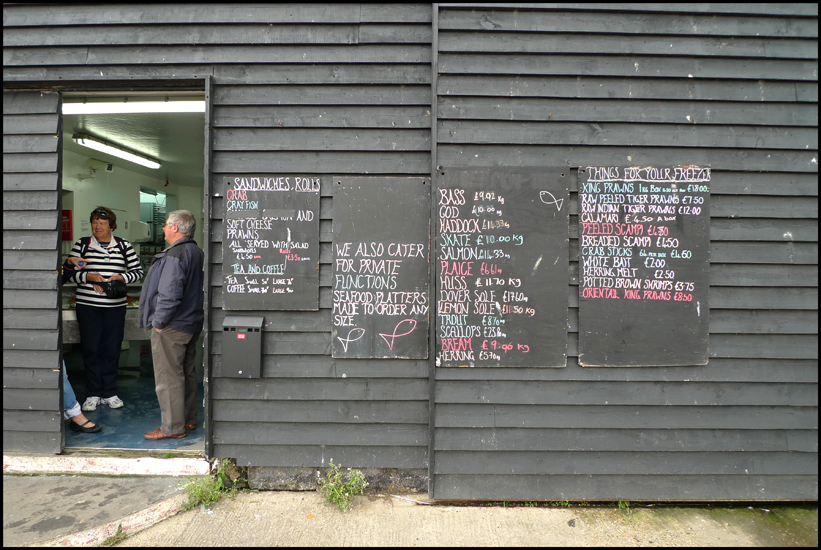 SANDWICHES, ROLLS
CRAB
CRAY FISH
AND
SOFT CHEESE
PRAWNS
ALL SERVED WITH SALAD
Sandwiches Rolls
TEA AND COFFEE
TEA SMALL LARGE
COFFEE SMALL LARGE
WE ALSO CATER
FOR PRIVATE
FUNCTIONS
SEAFOOD PLATTERS
MADE TO ORDER ANY
SIZE.
BASS £9.02 kg
COD £10.00 kg
HADDOCK £14.33kg
SKATE £10.00 kg
SALMON £14.33kg
PLAICE £6.61kg
HUSS £11.70 kg
DOVER SOLE £17.60kg
LEMON SOLE £11.50kg
TROUT £8.70kg
SCALLOPS
BREAM £9.96 kg
HERRING £5.70kg
THINGS FOR YOUR FREEZER
KING PRAWNS 1 KG BOX £18.00
RAW PEELED TIGER PRAWNS £7.50
RAW INDIAN TIGER PRAWNS £12.00
CALAMARI £4.50 A BOX
PEELED SCAMPI £4.80
BREADED SCAMPI £4.50
CRAB STICKS £4.50
WHITE BAIT £2.00
HERRING MELT £2.50
POTTED BROWN SHRIMPS £3.75
ORIENTAIL KING PRAWNS £8.50